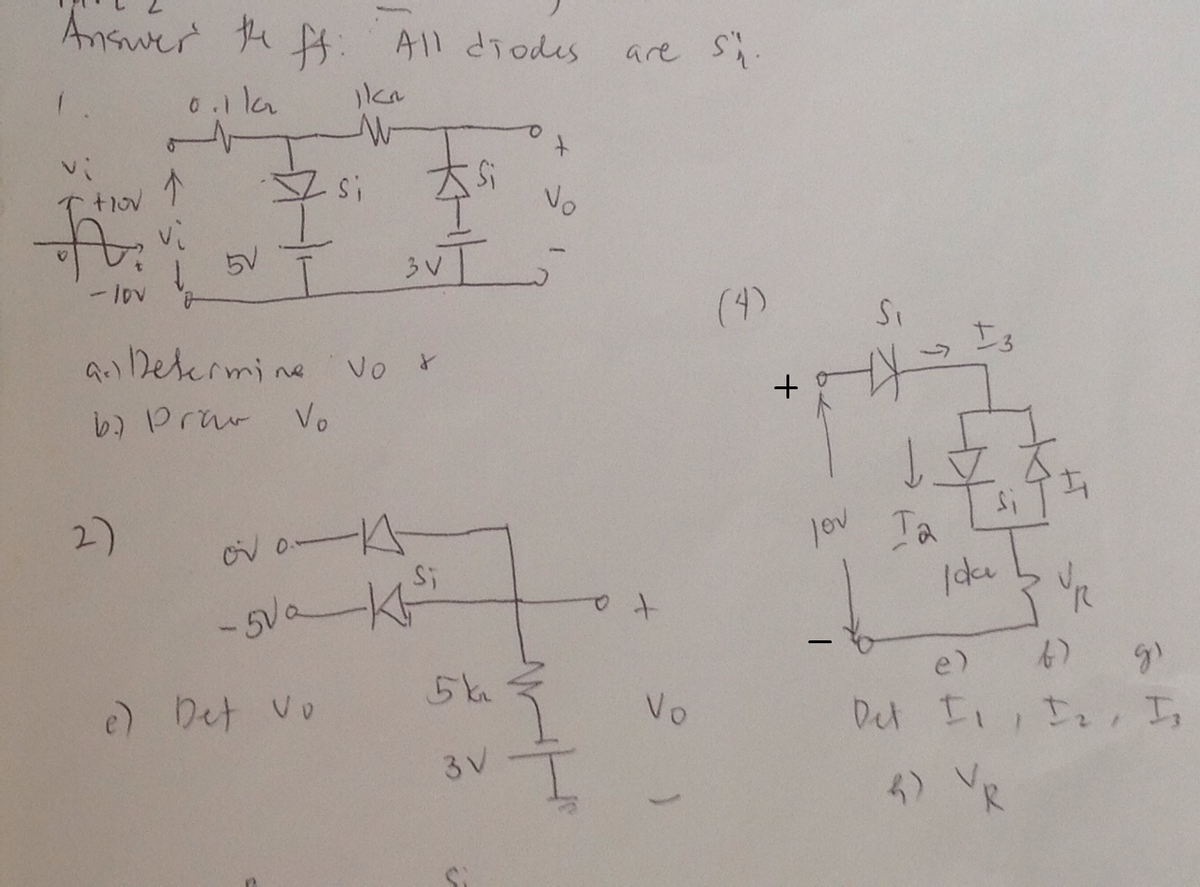 Answer the ff: All diodes are Si.
1.
0.1 kΩ 1kΩ
Vi
+10V
Vi
0
t
-10V
Si
5V
Si
3V
+
Vo
-
a.) Determine Vo &
b.) Draw Vo
2)
0V
-5V
Si
+
5kΩ
Vo
3V
-
c) Det Vo
(4)
Si
I3
+
10V
I2
Si
I1
10kΩ
VR
-
e) f) g)
Det I1, I2, I3
h) VR
Si